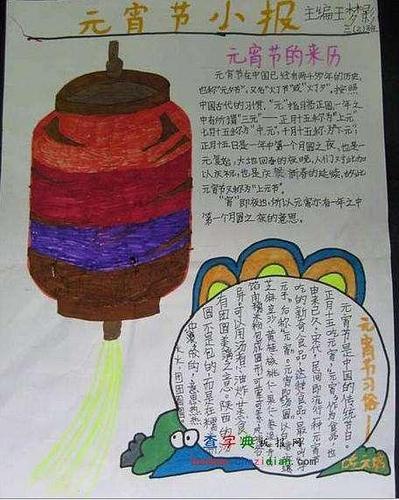 元宵节小报
主编王梦影
三(2)班
元宵节的来历
元宵节在中国已经有两千多年的历史,
也称"元夕节",又名"灯节"或"灯夕"。按照
中国古代的习惯,"元"指月
之有所谓"三元"——正月十五称为"上元",
七月十五称为"中元",十月十五称为"下元";
正月十五日是一年中第一个月圆之夜,也是一
元复始,大地回春的夜晚,人们对此加
以庆祝,也是庆贺新春的延续,故此
元宵节又称为"上元节"。
"宵"即夜也,所以元宵亦有一年之中
第一个月圆之夜的意思。
元宵节习俗
元宵节是中国的传统节日。
正月十五吃元宵,"元宵"作为食品
由来已久。宋代,民间即流行一种元宵节
吃的新奇食品。这种食品,最早叫浮
元子,后称元宵。元宵即汤圆以
芝麻豆沙黄桂核桃仁果仁枣泥
馅用糯米粉包成圆形,可荤可素,风味各
异。可以用汤煮油炸蒸食,
有团圆美满之意。陕西的
圆不是包的,而是在糯
查字典手抄报网
chazidian.com